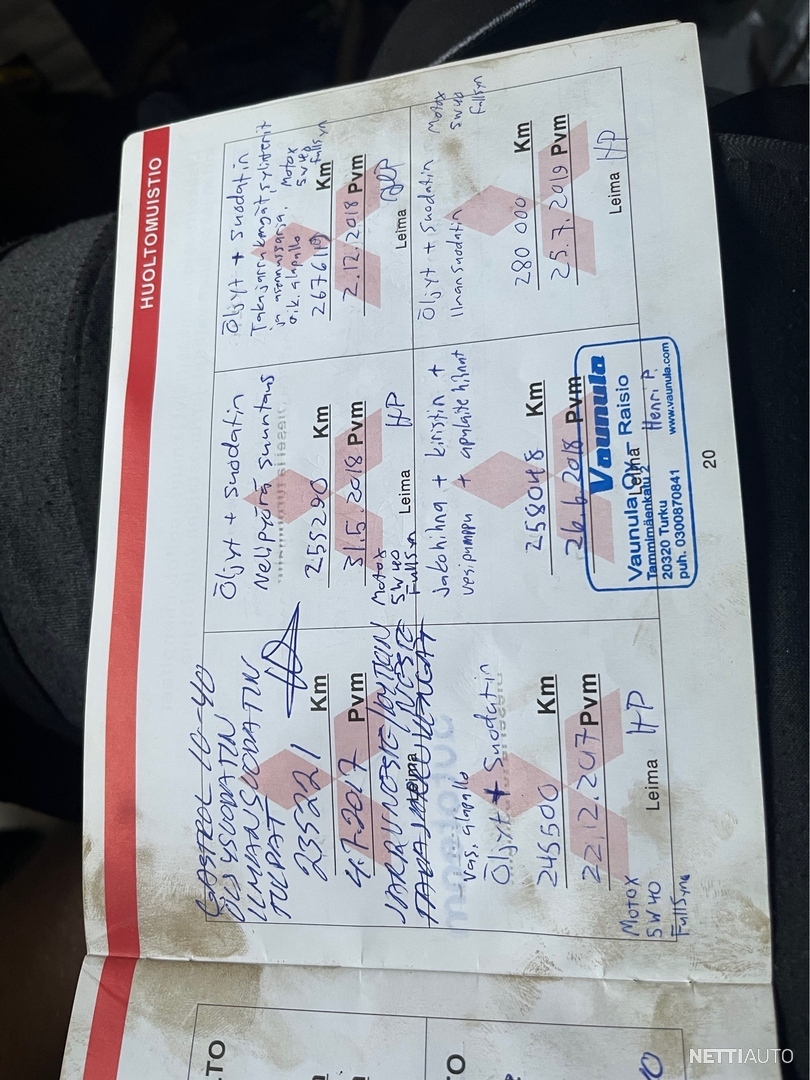 HUOLTOMUISTIO
CASTROL 10-40
ÖLJYSUODATIN
ILMANSUODATIN
TULPAT
235221 Km
4.7.2017 Pvm
JARRUNESTE/KYTKIN NESTE
Leima
TAKAJARRU
Öljyt + Suodatin
Nelipyörä suuntaus
255290 Km
31.5.2018 Pvm
Motox
5W40
Fullsyn
Leima HP
Öljyt + Suodatin
Takajarrukengät, sylinterit
ja asennussarja,
oik. alapallo
Motox
5W40
Fullsyn
267611 Km
2.12.2018 Pvm
Leima HP
Vas. alapallo
Öljyt + Suodatin
245500 Km
22.12.2017 Pvm
Leima HP
Motox
5W40
Fullsyn
Jakohihna + kiristin +
vesipumppu + apulaite hihnat
258048 Km
26.6.2018 Pvm
Leima
Vaunula
Vaunula Oy - Raisio
Tammimäenkatu 2
20320 Turku
Henri P.
puh. 0300870841
www.vaunula.com
Öljyt + Suodatin
Ilmansuodatin
Motox
5W40
Fullsyn
280 000 Km
25.7.2019 Pvm
Leima HP
20
LTO
TO
NETTIAUTO